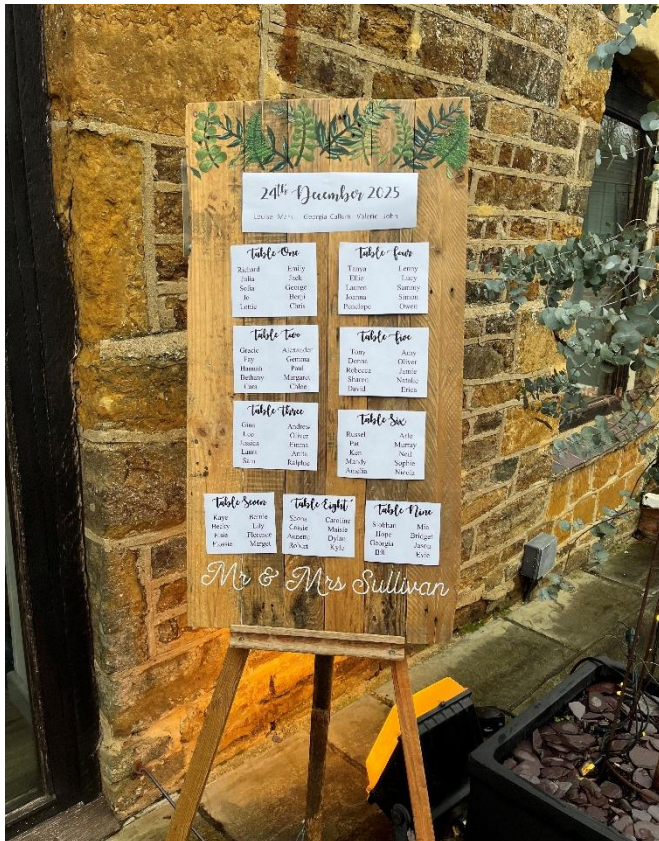 24th December 2025
Louise Mary Georgia Callum Valerie John
Table One
Richard Emily
Julia Jack
Sofia George
Jo Benji
Lottie Chris
Table Four
Tanya Lenny
Ellie Lucy
Lauren Sammy
Joanna Simon
Penelope Owen
Table Two
Gracie Alexander
Fay Gemma
Hannah Paul
Bethany Margaret
Cara Chloe
Table Five
Tony Amy
Donna Oliver
Rebecca Jamie
Sharon Natalie
David Erica
Table Three
Gina Andrew
Leo Oliver
Jessica Emma
Laura Anita
Sam Ralphie
Table Six
Russel Arlo
Pat Murray
Ken Neil
Mandy Sophie
Amelia Nicola
Table Seven
Kaye
Becky Lily
Florence
Flossie Margot
Table Eight
Caroline
Cassie Maisie
Annette Dylan
Robert Kyle
Table Nine
Siobhan Mia
Hope Bridget
Georgia Jason
Bill Evie
Mr & Mrs Sullivan